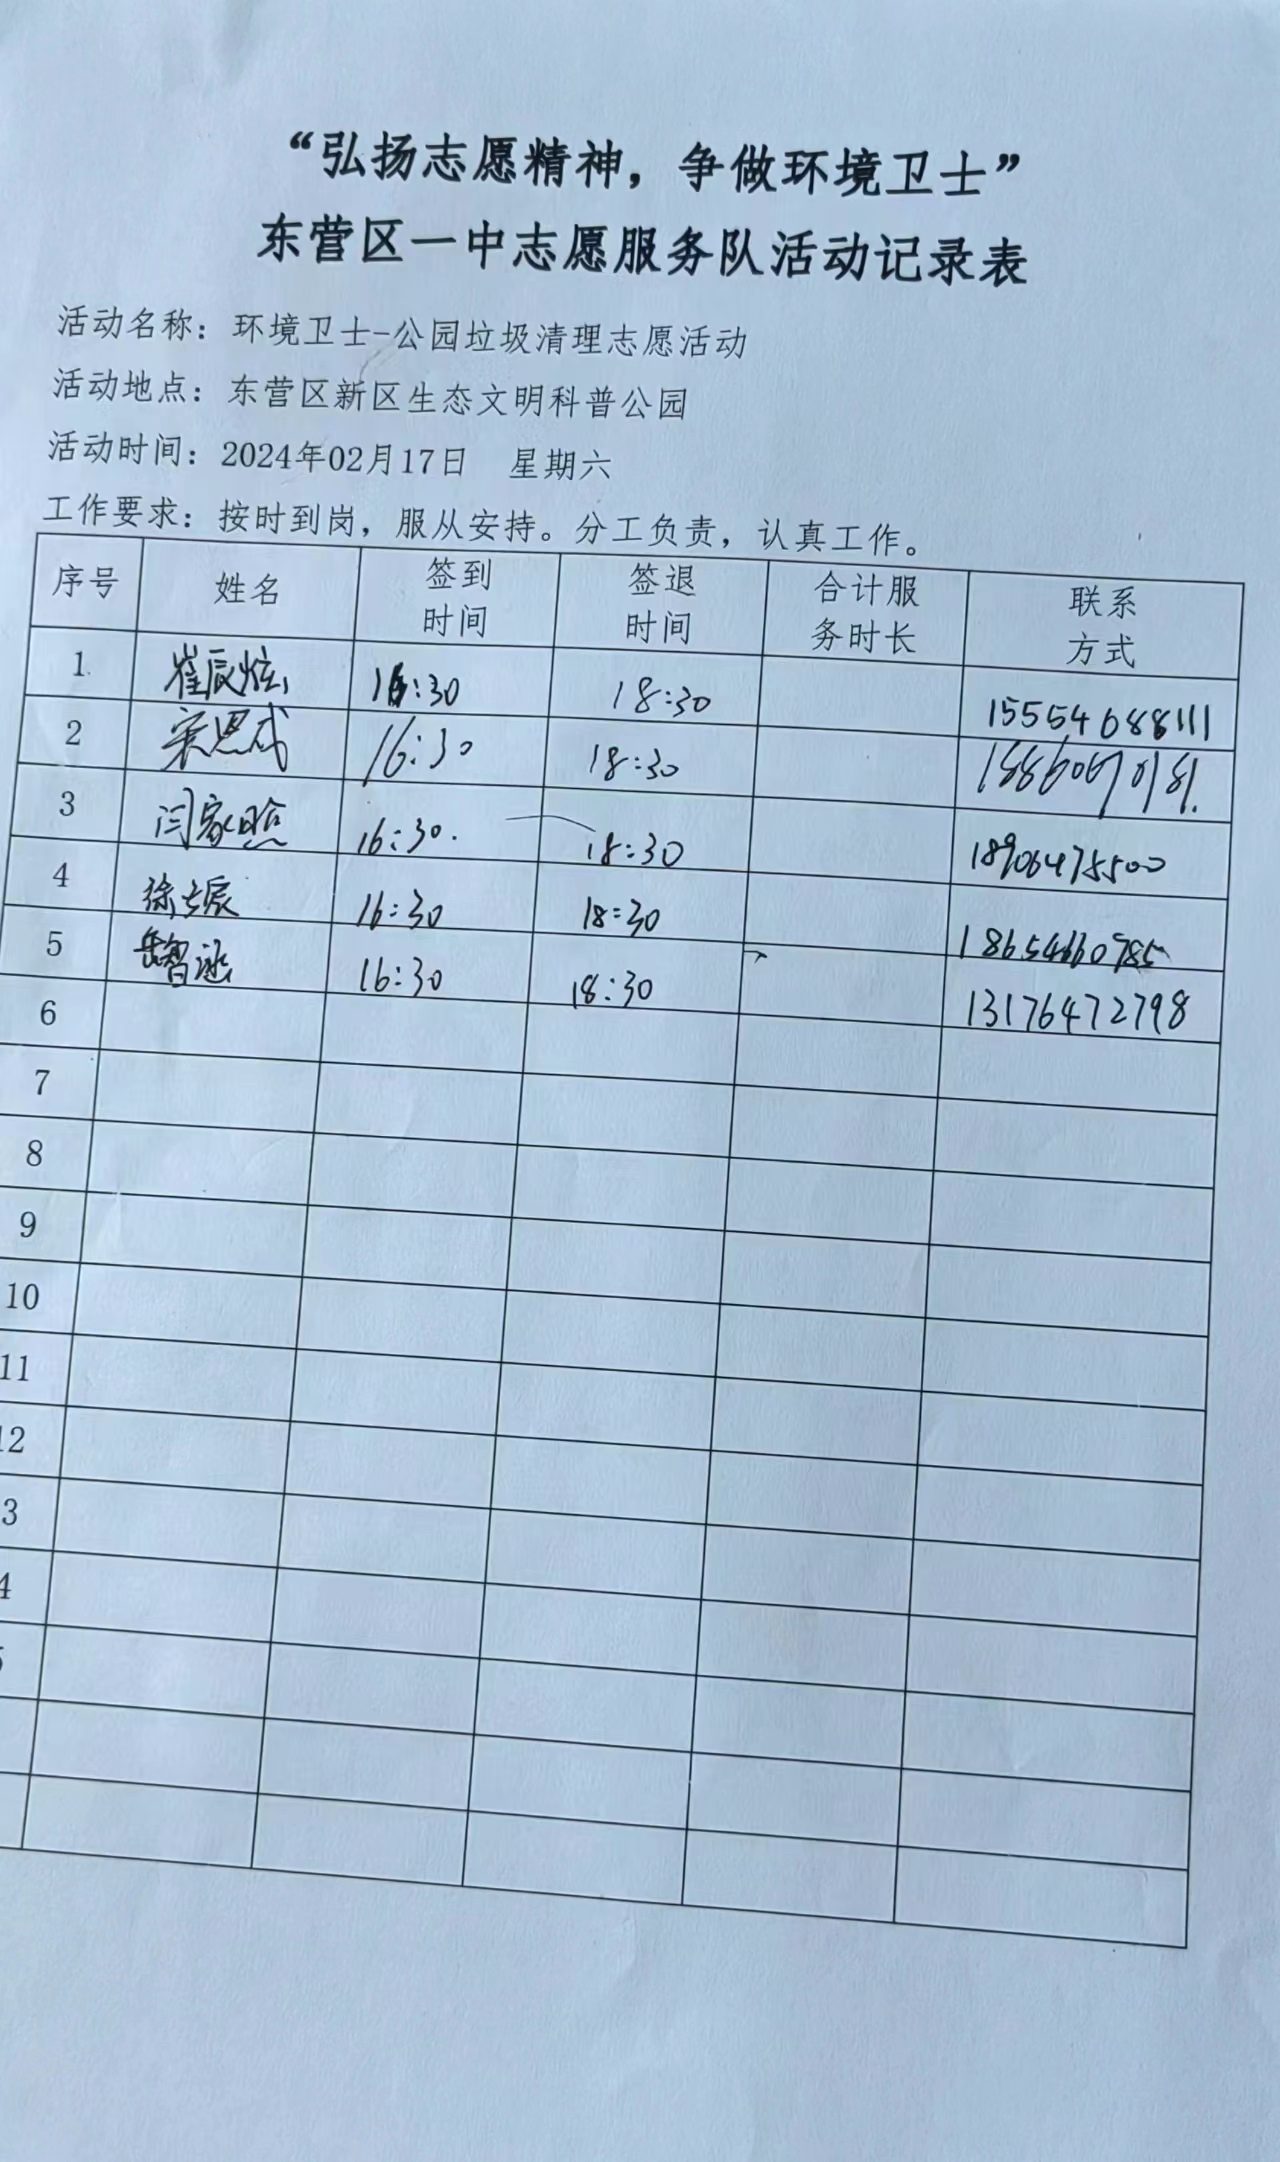 “弘扬志愿精神，争做环境卫士”
东营区一中志愿服务队活动记录表
活动名称：环境卫士-公园垃圾清理志愿活动
活动地点：东营区新区生态文明科普公园
活动时间：2024年02月17日 星期六
工作要求：按时到岗，服从安持。分工负责，认真工作。
序号 姓名 签到时间 签退时间 合计服务时长 联系方式
1 崔辰炫 16:30 18:30 15554688111
2 宋思成 16:30 18:30
3 闫家晗 16:30. 18:30 18906475500
4 16:30 18:30 18654660785
5 岳智涵 16:30 18:30 13176472798
6
7
8
9
10
11
12
3
4
5